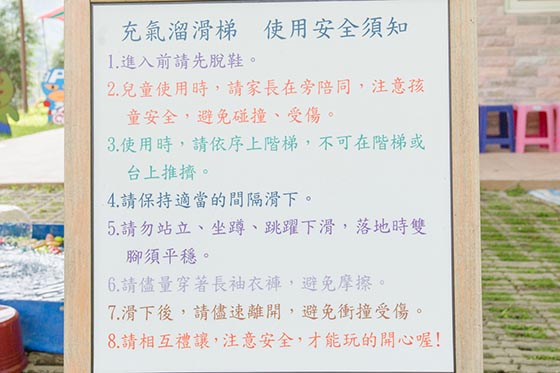 充氣溜滑梯　使用安全須知
1.進入前請先脫鞋。
2.兒童使用時，請家長在旁陪同，注意孩
童安全，避免碰撞、受傷。
3.使用時，請依序上階梯，不可在階梯或
台上推擠。
4.請保持適當的間隔滑下。
5.請勿站立、坐蹲、跳躍下滑，落地時雙
腳須平穩。
6.請儘量穿著長袖衣褲，避免摩擦。
7.滑下後，請儘速離開，避免衝撞受傷。
8.請相互禮讓，注意安全，才能玩的開心喔!